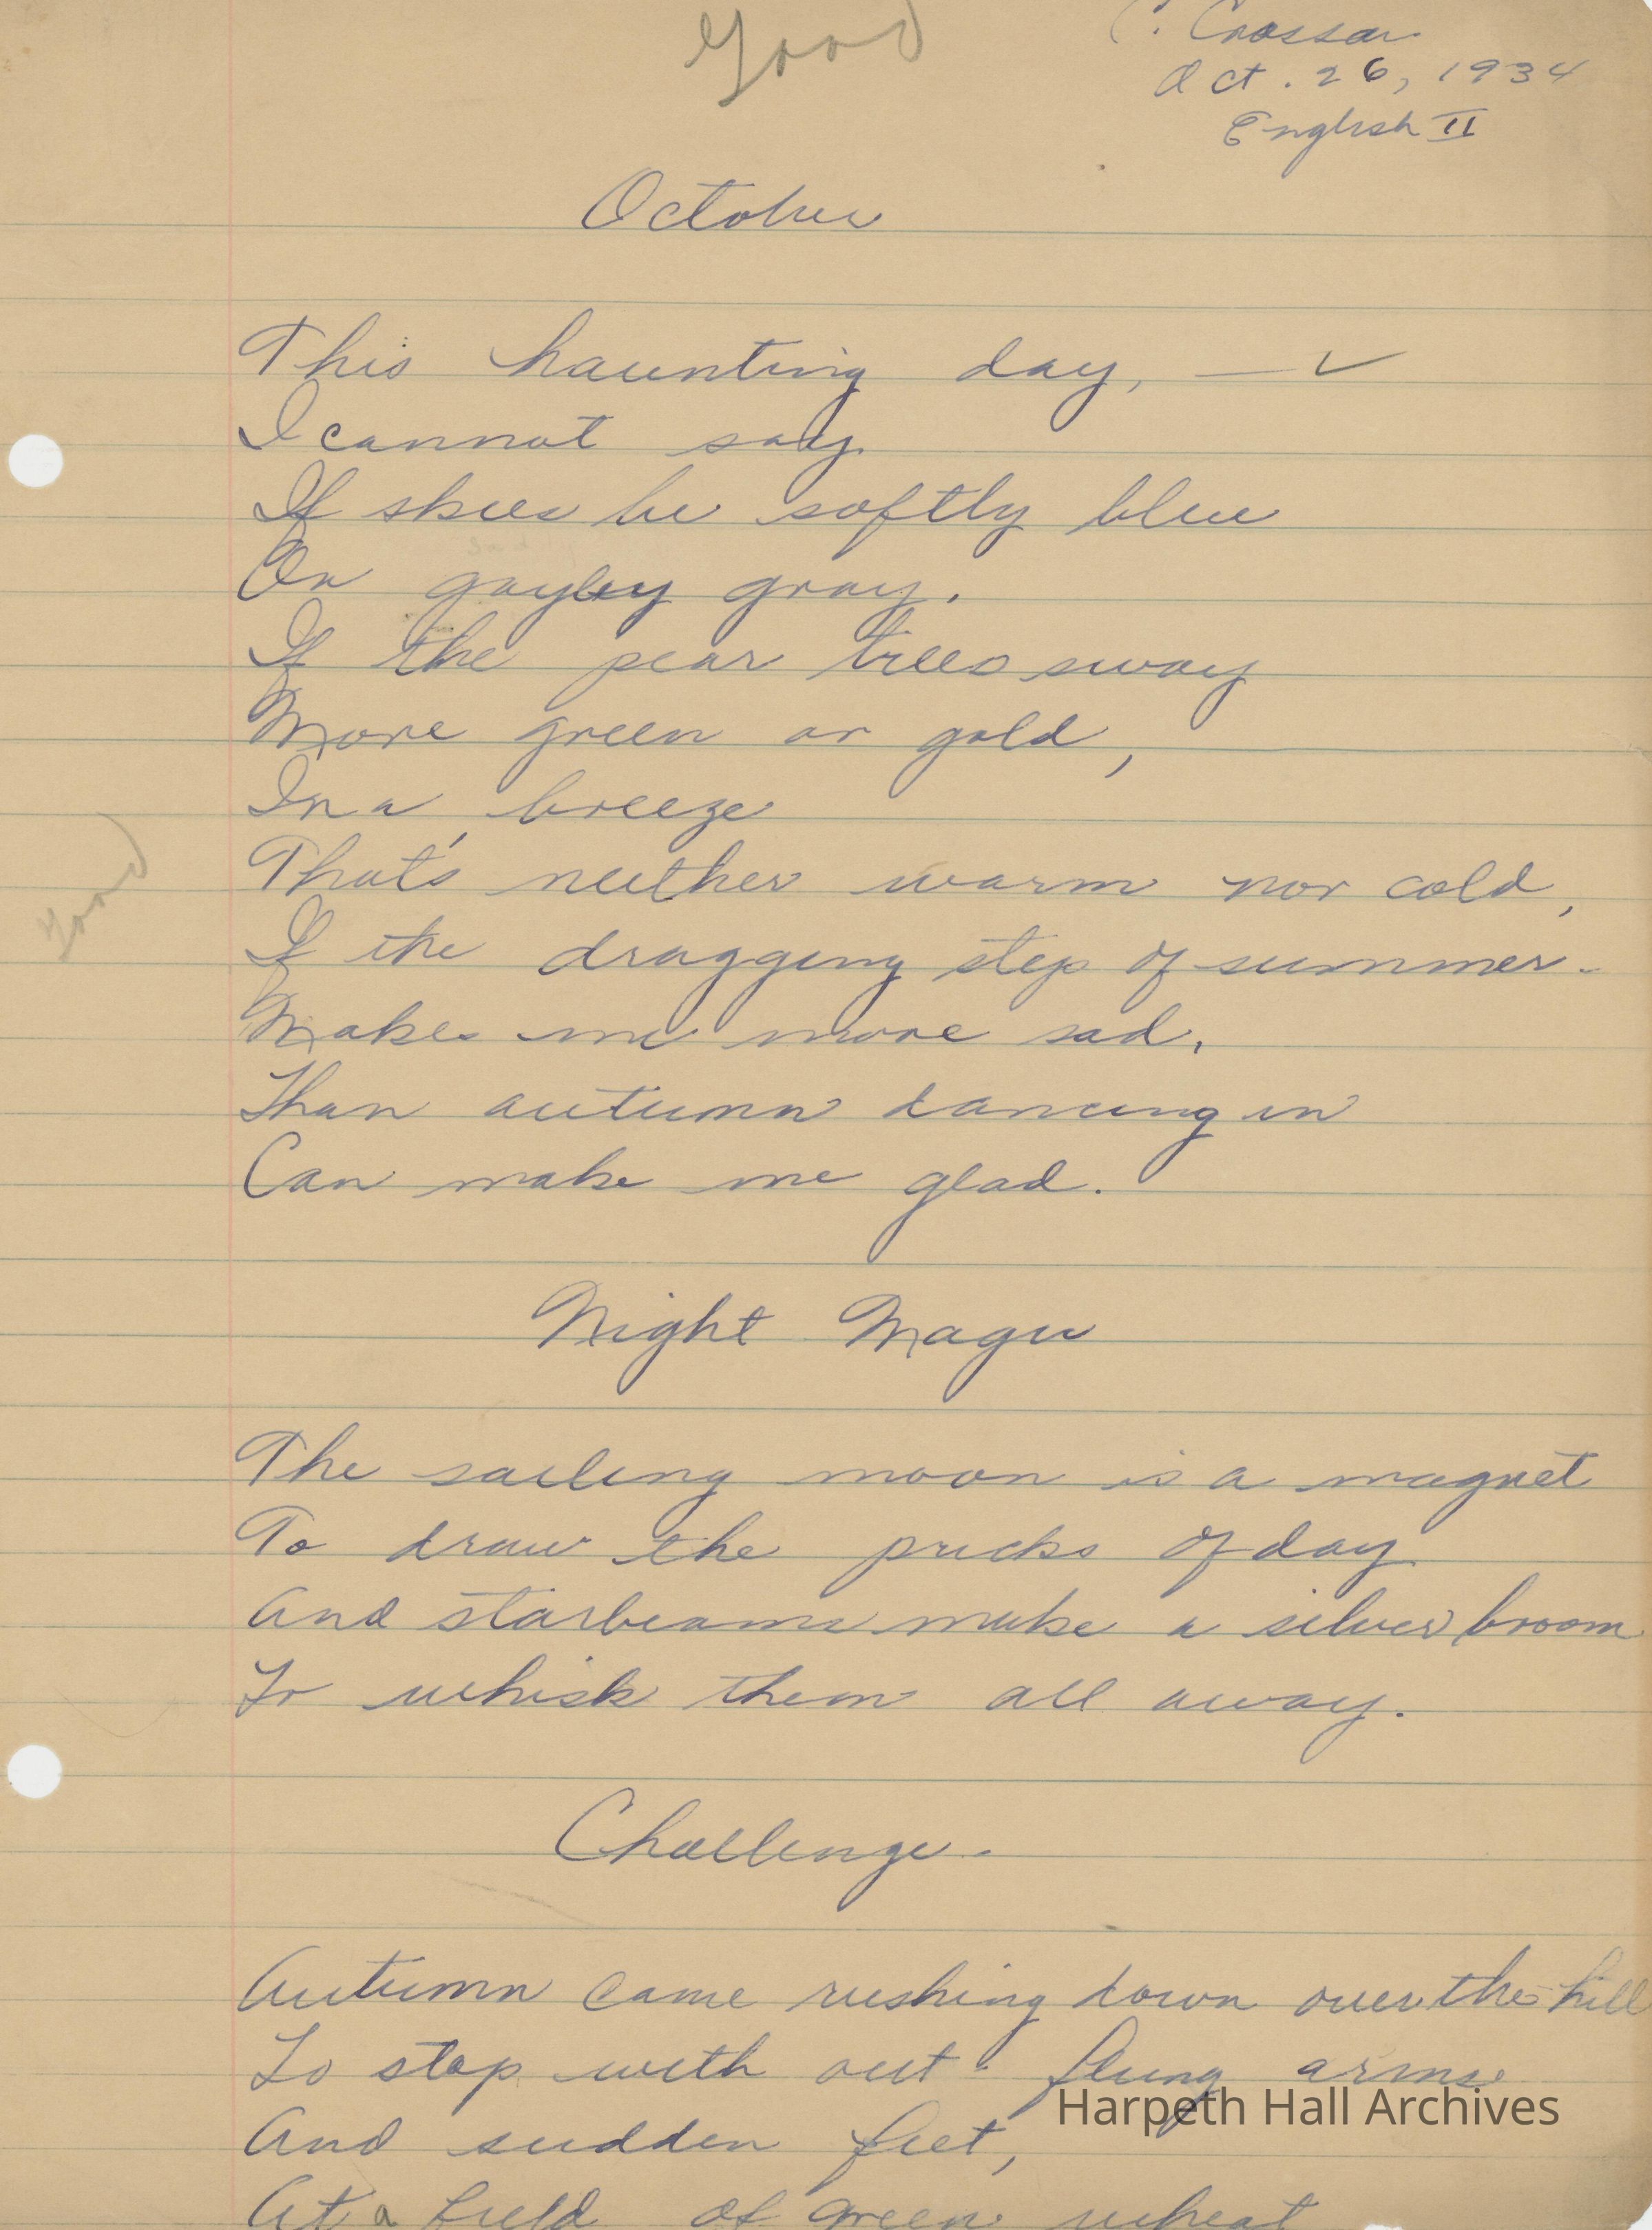 Good
C. Crossar
Oct. 26, 1934
English II
October
This haunting day, —
I cannot say
If skies be softly blue
Or gayley gray.
If the pear trees sway
More green or gold,
In a breeze
That's neither warm nor cold,
If the dragging step of summer
Makes me more sad,
Than autumn dancing in
Can make me glad.
Good
Night Magic
The sailing moon is a magnet
To draw the pricks of day
And starbeams make a silver broom
To whisk them all away.
Challenge.
Autumn came rushing down over the hill
To stop with out-flung arms
And sudden feet,
At a field of green wheat
Harpeth Hall Archives